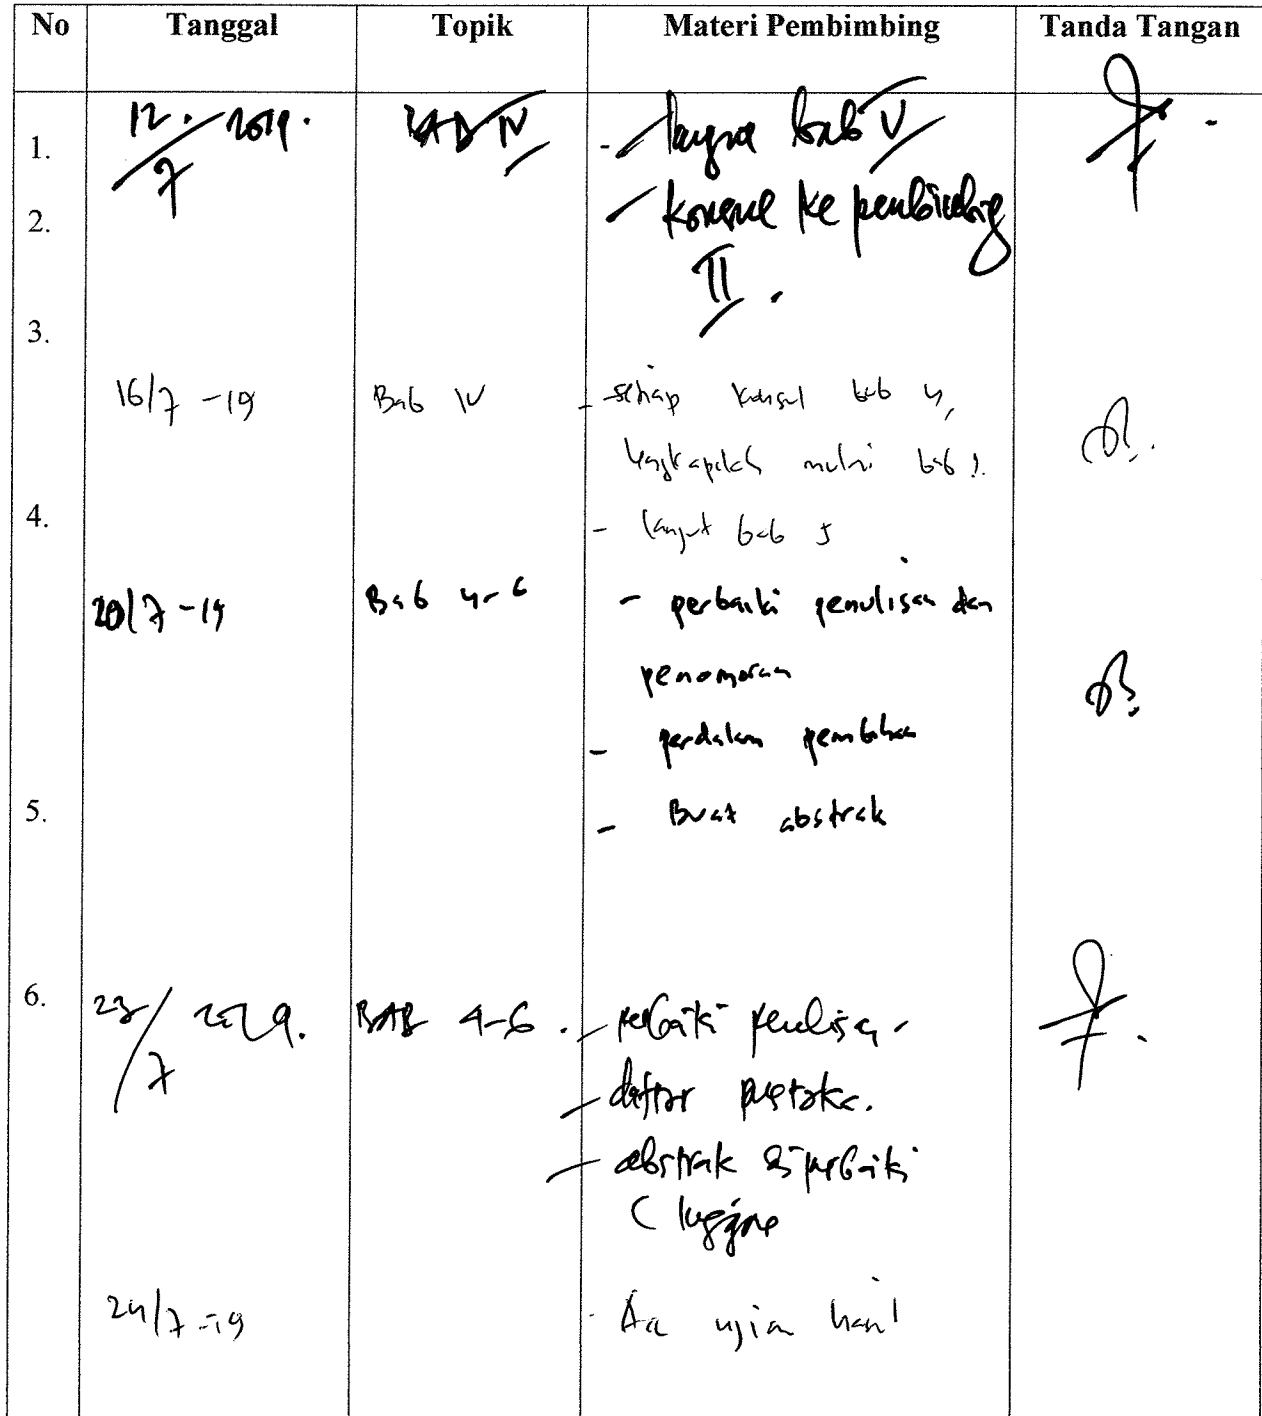 No Tanggal Topik Materi Pembimbing Tanda Tangan
1. 12/7 2019. BAB IV - bab V
2. - ke pembimbing
II.
3.
16/7 -19 Bab IV - setiap konsul bab 4,
lengkapilah mulai bab 1.
4. - lanjut bab 5
20/7 -19 Bab 4-6 - perbaiki penulisan dan
penomoran
- perdalam
5. - Buat abstrak
6. 23/7 2019. BAB 4-6. - perbaiki penulisan
- daftar pustaka.
- abstrak diperbaiki
(
24/7 -19 - Acc ujian hasil